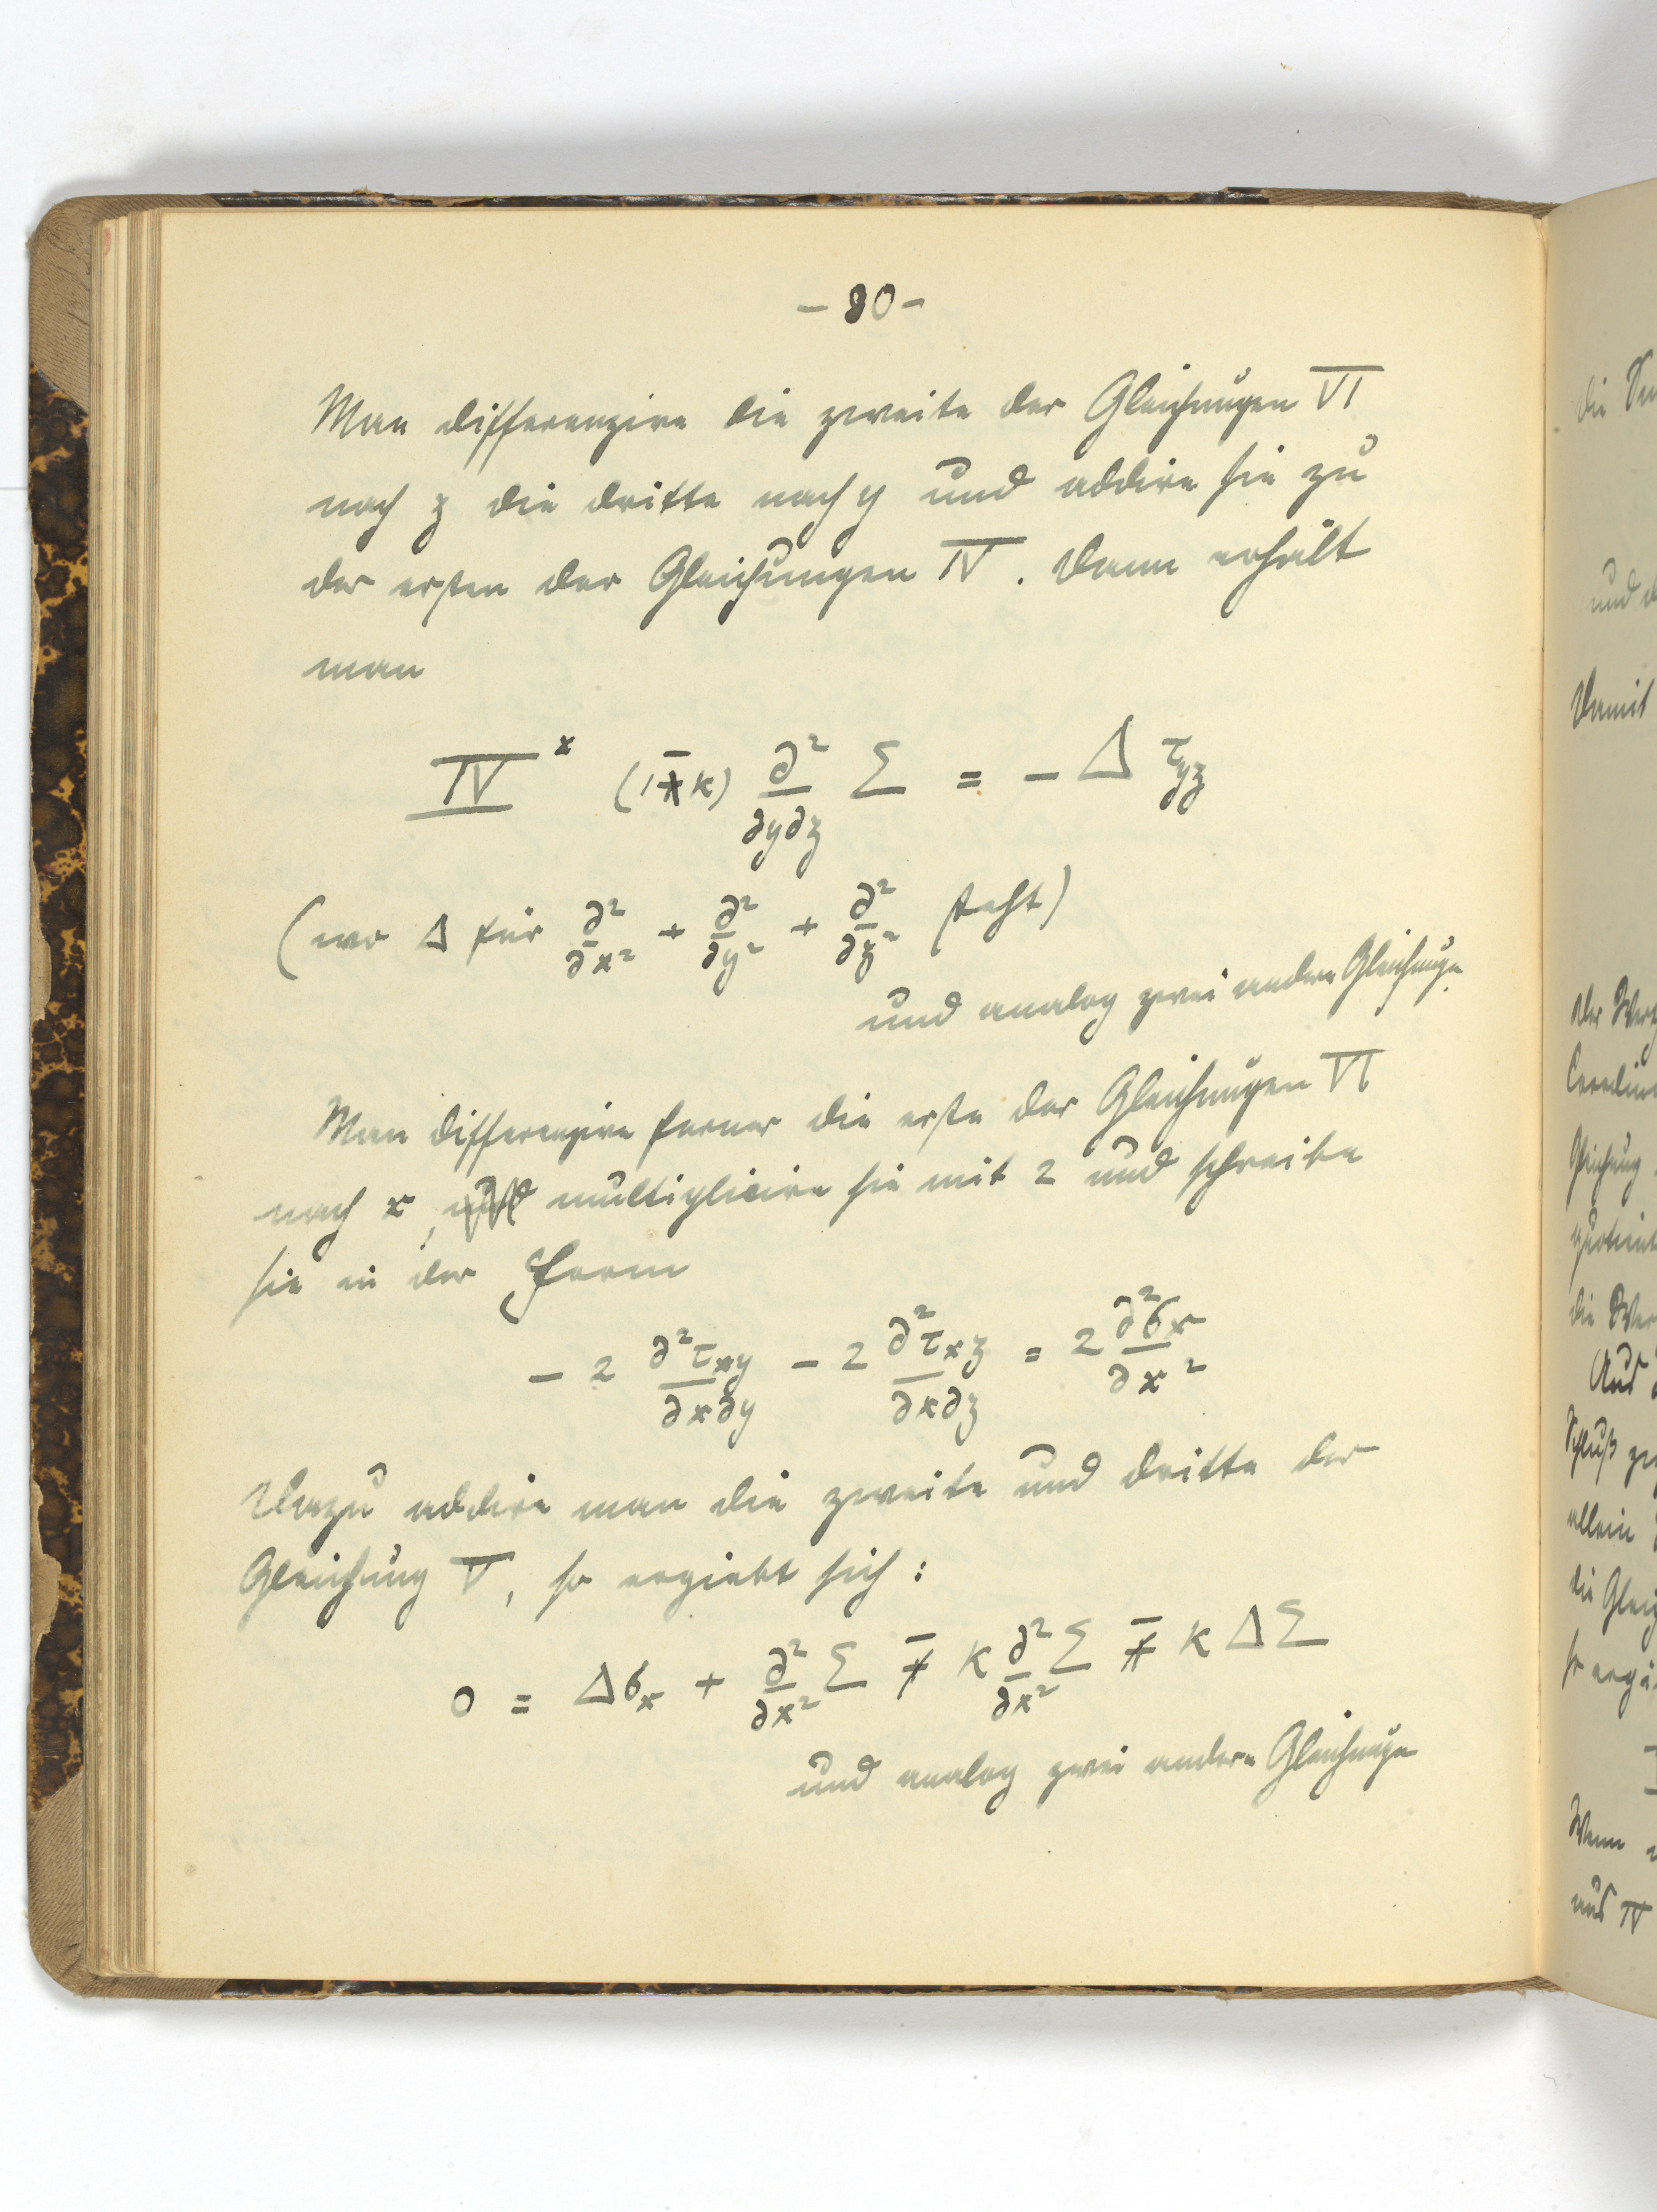 - 80 -
Man differenzire die zweite der Gleichungen VI
nach z die dritte nach y und addire sie zu
der ersten der Gleichungen IV. Dann erhält
man
IV^x (1 - k) ∂²/∂y∂z Σ = - Δ τ_yz
(wo Δ für ∂²/∂x² + ∂²/∂y² + ∂²/∂z² steht)
und analog zwei andere Gleichungen.
Man differenzire ferner die erste der Gleichungen VI
nach x, und multiplicire sie mit 2 und schreibe
sie in der Form
- 2 ∂²τ_xy/∂x∂y - 2 ∂²τ_xz/∂x∂z = 2 ∂²σ_x/∂x²
Dazu addire man die zweite und dritte der
Gleichung V, so ergiebt sich:
0 = Δσ_x + ∂²/∂x² Σ - k ∂²/∂x² Σ - k ΔΣ
und analog zwei andere Gleichungen
die
und
Damit
Der
Gleichung
die
Aus
Schluß
allein
die
so
Wenn
aus IV